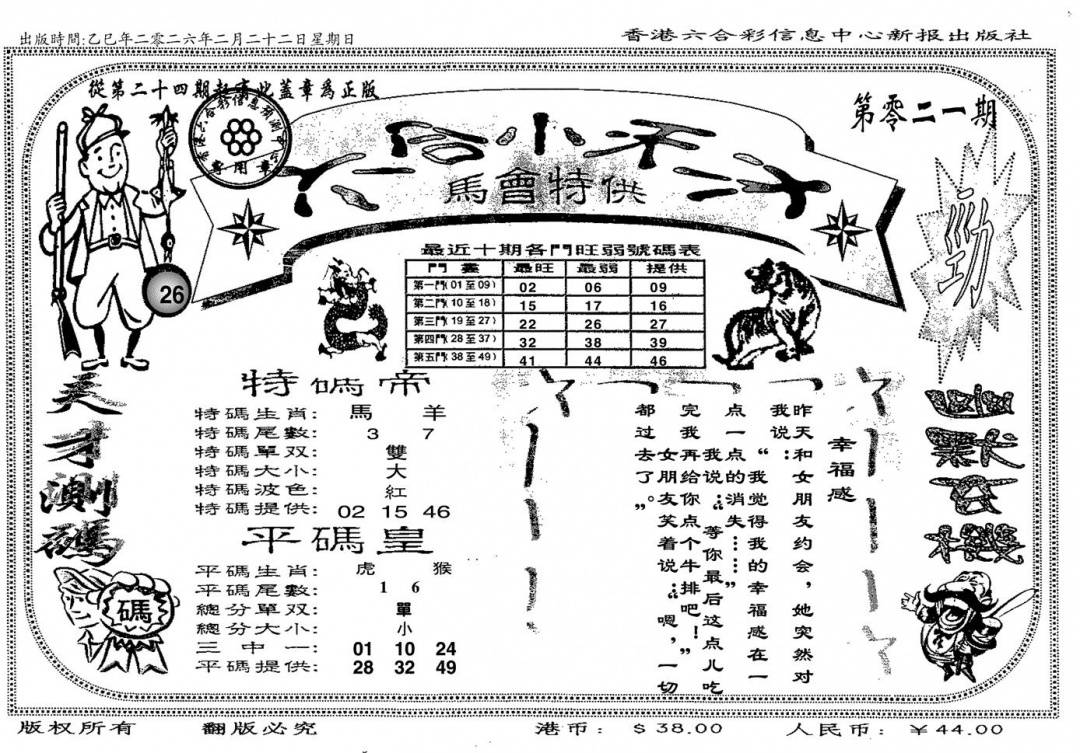 出版時間:乙巳年二零二六年二月二十二日星期日
香港六合彩信息中心新报出版社
從第二十四期起素此蓋章為正版
專用章
第零二一期
馬會特供
勁
26
最近十期各門旺弱號碼表
門畫 最旺 最弱 提供
第一門(01至09) 02 06 09
第二門(10至18) 15 17 16
第三門(19至27) 22 26 27
第四門(28至37) 32 38 39
第五門(38至49) 41 44 46
天才测碼
特碼帝
特碼生肖: 馬 羊
特碼尾數: 3 7
特碼單双: 雙
特碼大小: 大
特碼波色: 紅
特碼提供: 02 15 46
平碼皇
平碼生肖: 虎 猴
平碼尾數: 1 6
總分單双: 單
總分大小: 小
三中一: 01 10 24
平碼提供: 28 32 49
碼
幸福感
昨天和女朋友约会，她突然对
我说：“我觉得我的幸福感在一
点一点的消失……”
我说：“等你最后这点儿吃
完我再给你点个牛排吧！”
女朋友笑着说：“嗯，一切
都过去了。”
幽默玄機
版权所有
翻版必究
港币: $38.00
人民币: ¥44.00